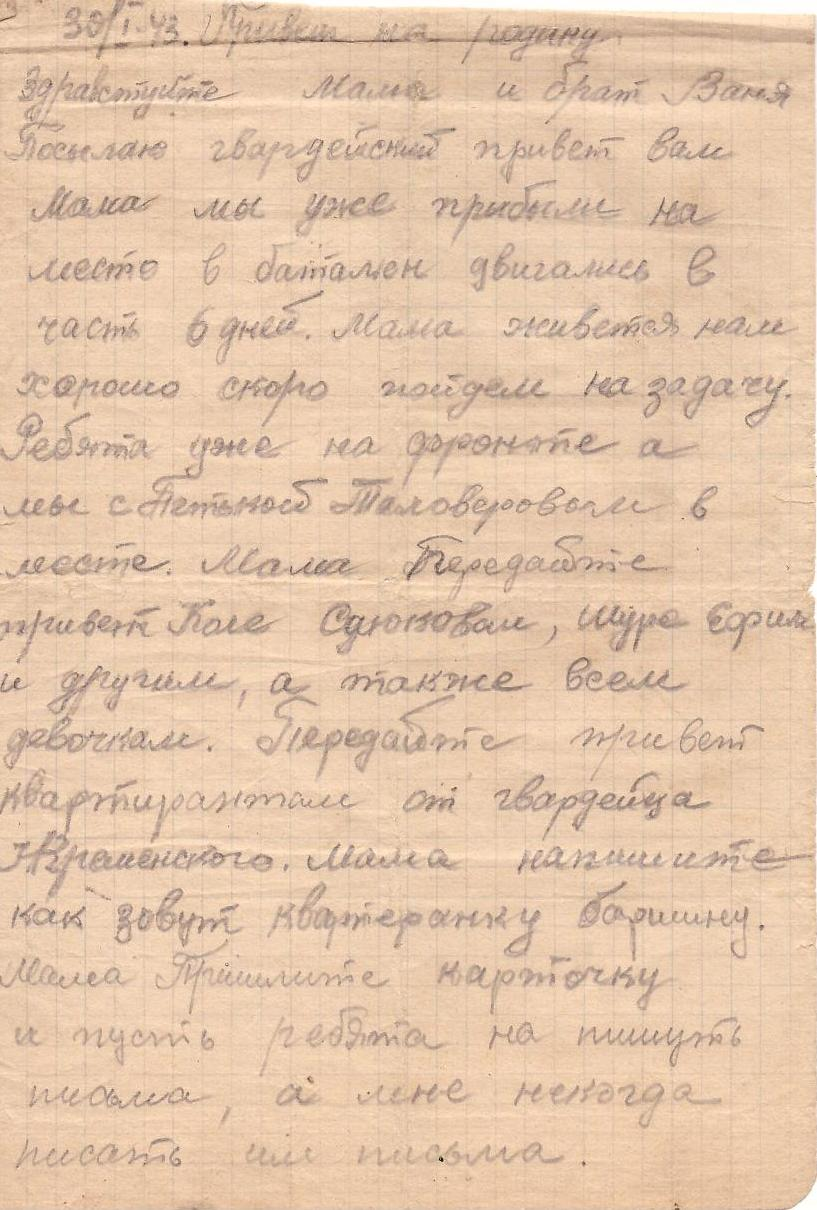 30/I-43. Привет на родину
Здравствуйте Мама и брат Ваня
Посылаю гвардейский привет вам
Мама мы уже прибыли на
место в баталиен двигались в
часть 6 дней. Мама живется нам
хорошо скоро пойдем на задачу.
Ребята уже на фронте а
мы с Петькой Таловеровым в
месте. Мама Передайте
привет Коле Сдюковым, Шуре Ефим
и другим, а также всем
девочкам. Передайте привет
квартирантам от гвардейца
Мама напишите
как зовут квартеранку баришну.
Мама Пришлите карточку
и пусть ребята на пишуть
письма, а мне некогда
писать им письма.